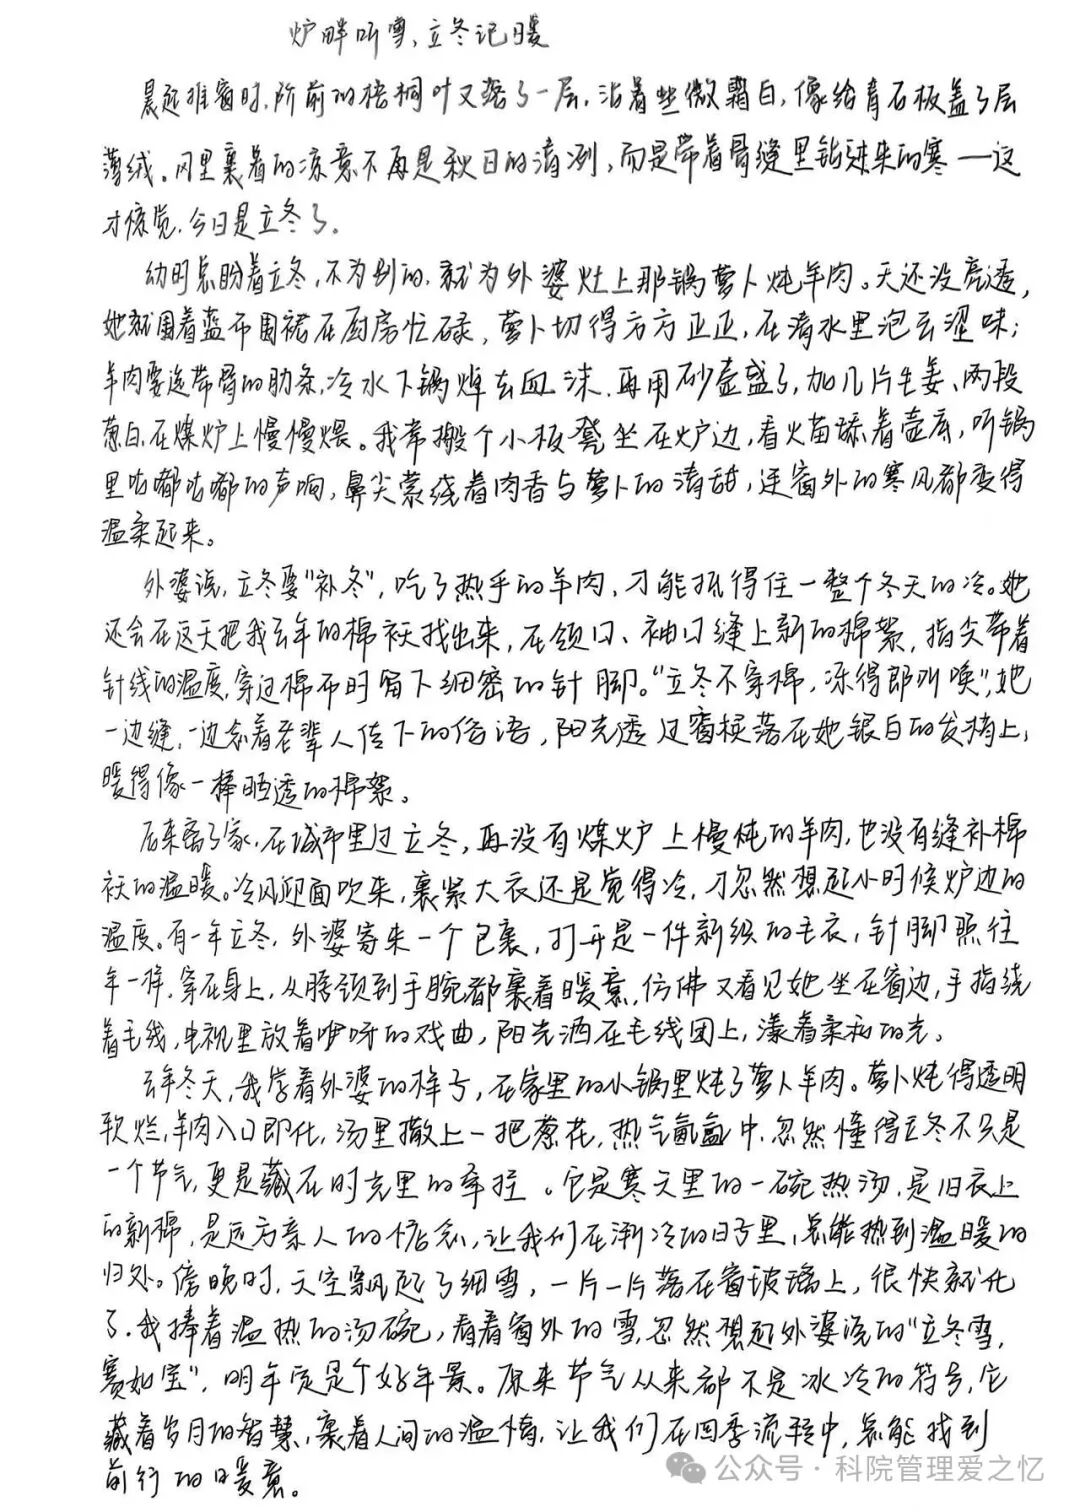 炉畔听雪,立冬记暖
晨起推窗时,阶前的梧桐叶又落了一层,沾着些微霜白,像给青石板盖了层
薄绒。风里裹着的凉意不再是秋日的清冽,而是带着骨缝里钻进来的寒—这
才惊觉,今日是立冬了。
幼时总盼着立冬,不为别的,就为外婆灶上那锅萝卜炖羊肉。天还没亮透,
她就围着蓝布围裙在厨房忙碌,萝卜切得方方正正,在清水里泡去涩味;
羊肉要选带骨的肋条,冷水下锅焯去血沫,再用砂壶盛了,加几片生姜、两段
葱白,在煤炉上慢慢煨。我常搬个小板凳坐在炉边,看火苗舔着壶底,听锅
里咕嘟咕嘟的声响,鼻尖萦绕着肉香与萝卜的清甜,连窗外的寒风都变得
温柔起来。
外婆说,立冬要"补冬",吃了热乎的羊肉,才能抵得住一整个冬天的冷。她
还会在这天把我去年的棉袄找出来,在领口、袖口缝上新的棉絮,指尖带着
针线的温度,穿过棉布时留下细密的针脚。"立冬不穿棉,冻得即叫唤",她
一边缝,一边念着老辈人传下的俗语,阳光透过窗棂落在她银白的发梢上,
暖得像一捧晒透的棉絮。
后来离了家,在城市里过立冬,再没有煤炉上慢炖的羊肉,也没有缝补棉
袄的温暖。冷风迎面吹来,裹紧大衣还是觉得冷,才忽然想起小时候炉边的
温度。有一年立冬,外婆寄来一个包裹,打开是一件新织的毛衣,针脚照往
年一样,穿在身上,从脖颈到手腕都裹着暖意,仿佛又看见她坐在窗边,手指绕
着毛线,电视里放着咿呀的戏曲,阳光洒在毛线团上,漾着柔和的光。
去年冬天,我学着外婆的样子,在家里的小锅里炖了萝卜羊肉。萝卜炖得透明
软烂,羊肉入口即化,汤里撒上一把葱花,热气氤氲中,忽然懂得立冬不只是
一个节气,更是藏在时光里的牵挂。它是寒天里的一碗热汤,是旧衣上
的新棉,是远方亲人的惦念,让我们在渐冷的日子里,总能找到温暖的
归处。傍晚时,天空飘起了细雪,一片一片落在窗玻璃上,很快就化
了。我捧着温热的汤碗,看着窗外的雪,忽然想起外婆说的"立冬雪,
赛如宝",明年定是个好年景。原来节气从来都不是冰冷的符号,它
藏着岁月的智慧,裹着人间的温情,让我们在四季流转中,总能找到
前行的暖意。
公众号·科院管理爱之忆